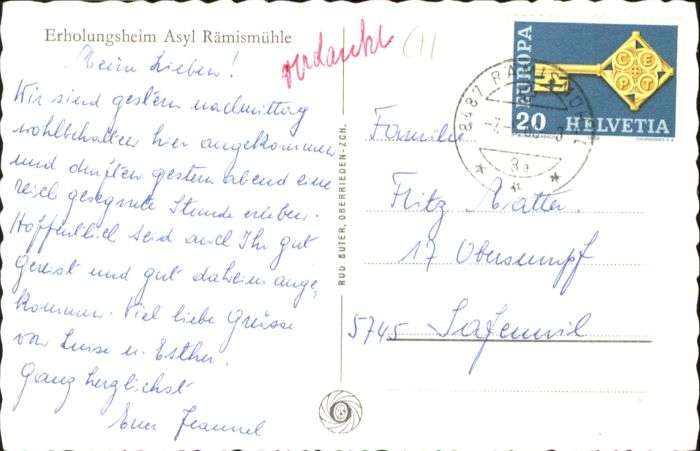 Erholungsheim Asyl Rämismühle
Meine Lieben!
Wir sind gestern nachmittag
wohlbehalten hier angekommen
und durften gestern abend eine
reich gesegnete Stunde erleben.
Hoffentlich seid auch Ihr gut
gereist und gut daheim ange-
kommen. Viel liebe Grüsse
von Luise u. Esther.
Ganz herzlichst
Eure
verdankt
RUD. SUTER, OBERRIEDEN-ZCH.
EUROPA
CEPT
20 HELVETIA
8487 RÄMISMÜHLE
3a
Familie
Fritz Matter
17 Obersumpf
5745 Safenwil